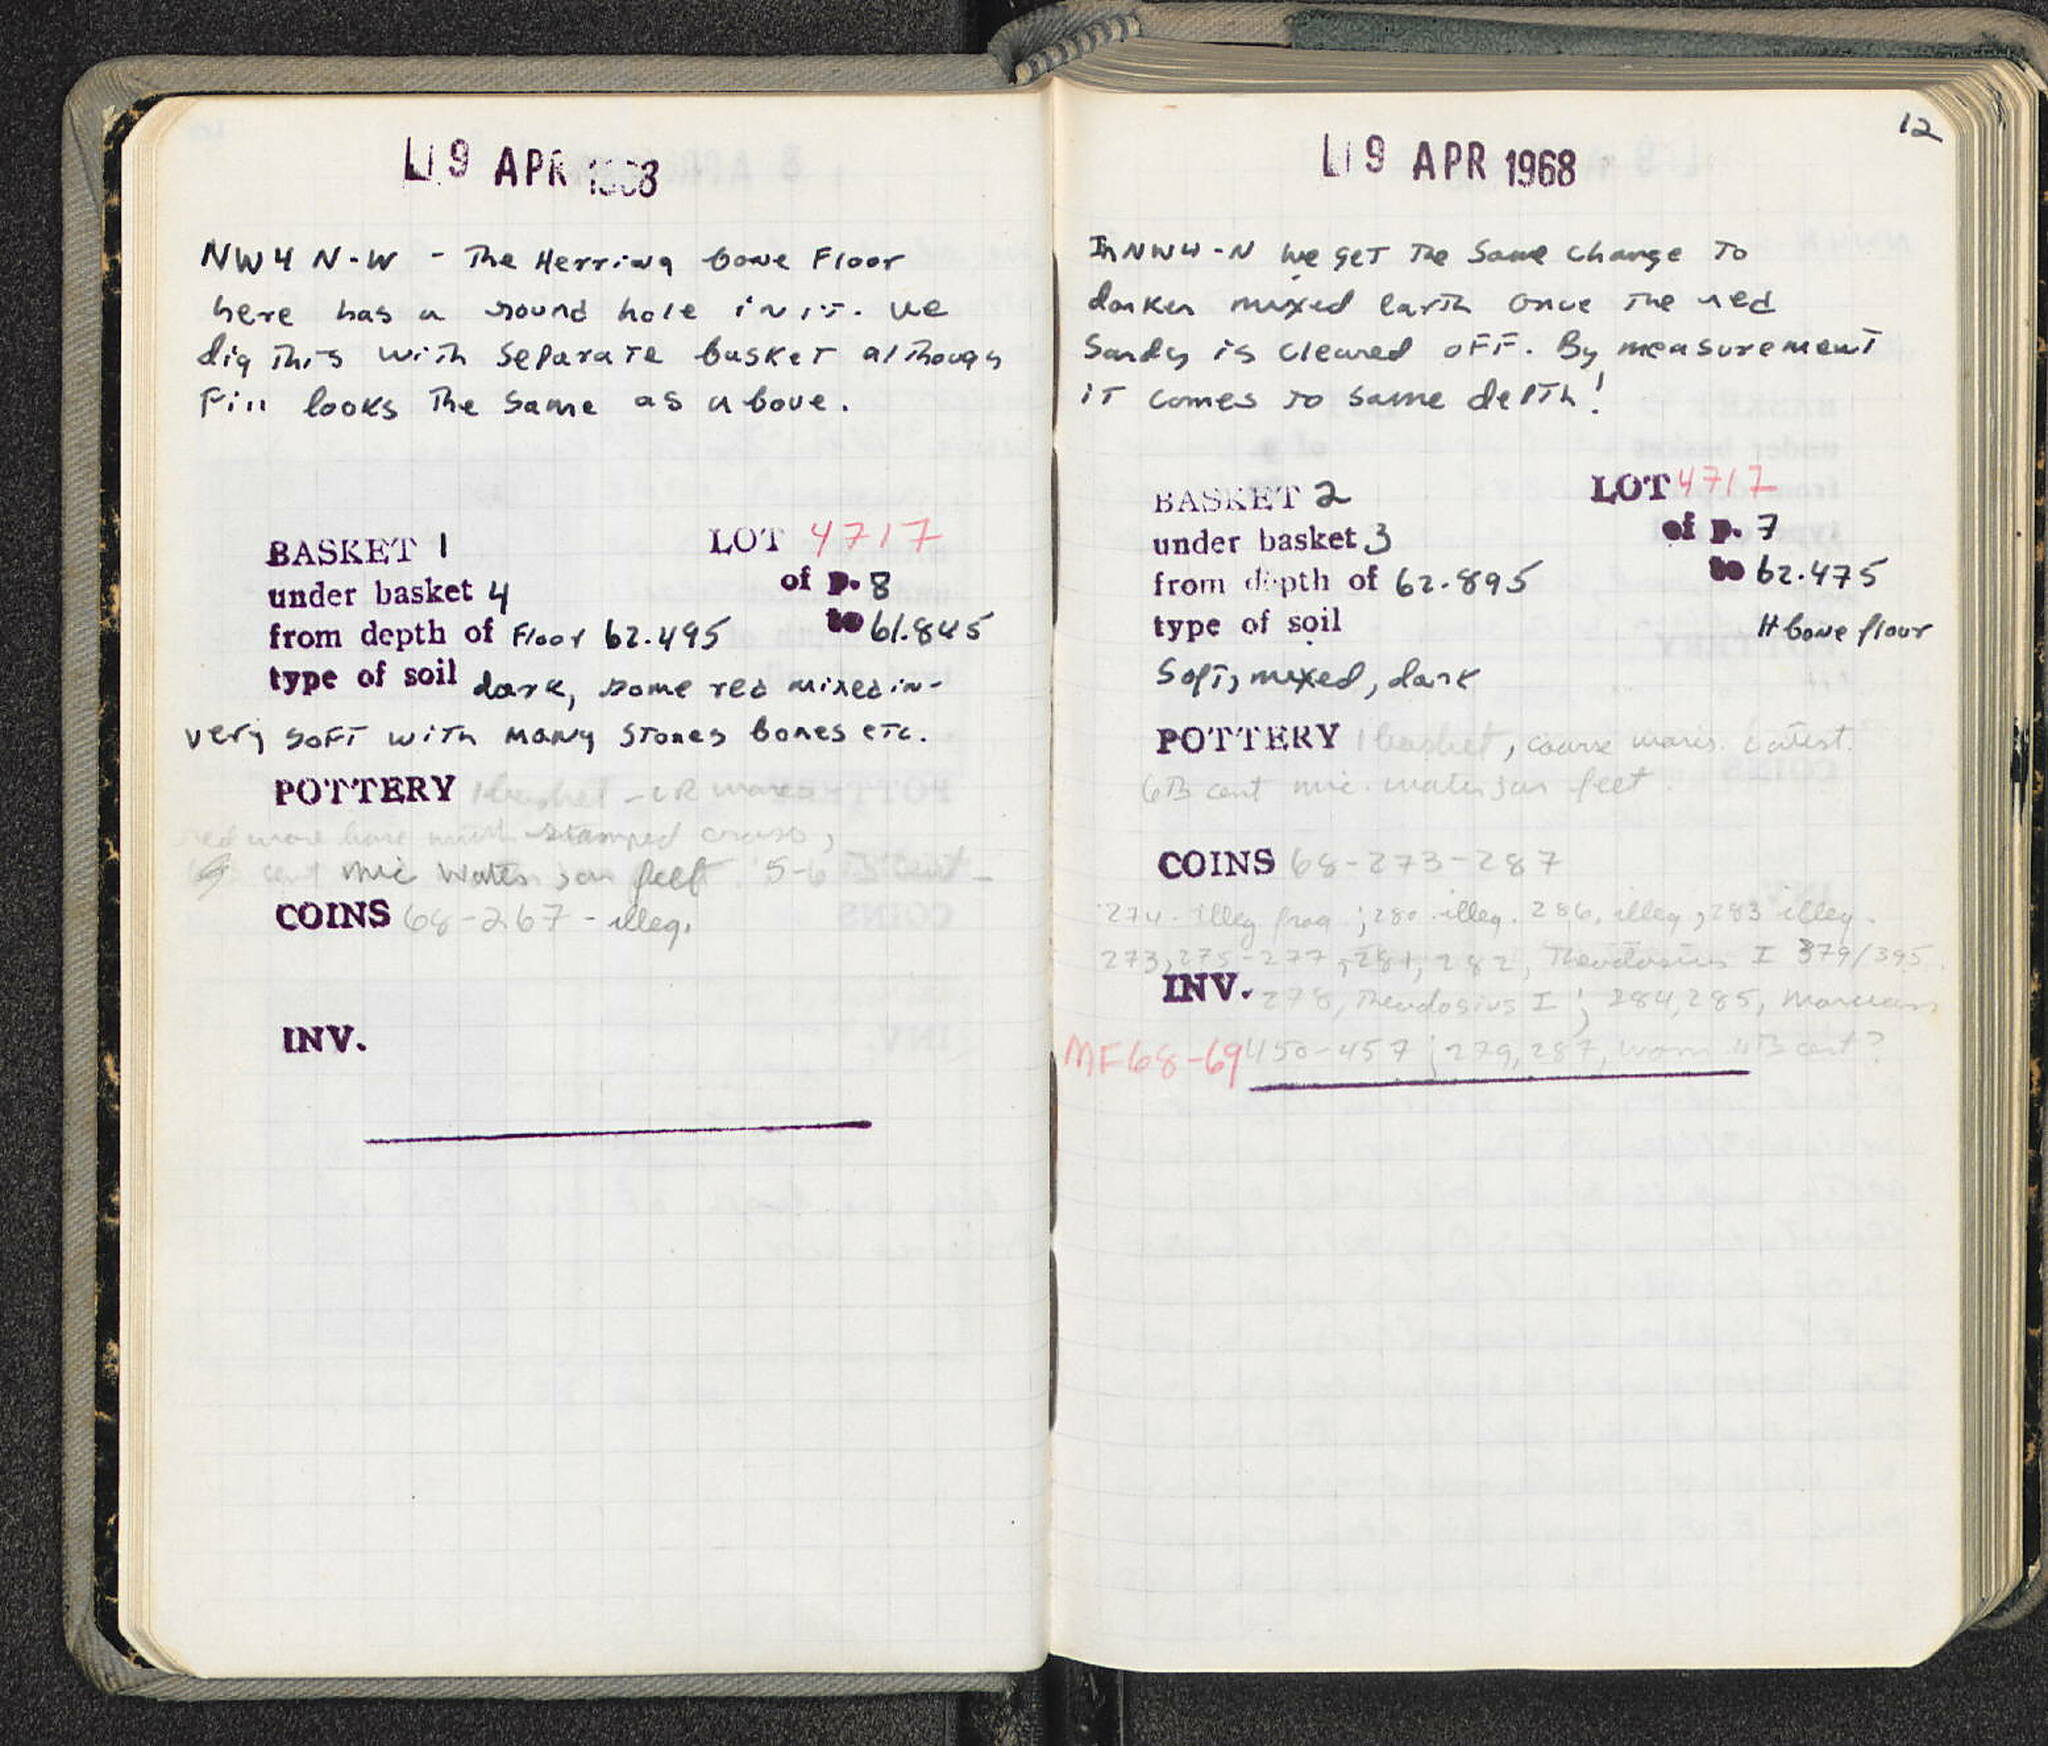 9 APR 1968
NW4 N-W - The Herring bone Floor
here has a round hole in it. We
dig this with separate basket although
Fill looks the same as above.
BASKET 1 LOT 4717
under basket 4 of p. 8
from depth of Floor 62.495 to 61.845
type of soil dark, some red mixed in-
very soft with many stones bones etc.
POTTERY 1 basket - LR wares
red ware base with stamped cross,
cent mic water jar feet. 5-6
COINS 68-267 - illeg.
INV.
12
9 APR 1968
In NW4-N we get the same change to
darker mixed earth once the red
sandy is cleared off. By measurement
it comes to same depth!
BASKET 2 LOT 4717
under basket 3 of p. 7
from depth of 62.895 to 62.475
type of soil H bone floor
Soft, mixed, dark
POTTERY 1 basket, coarse wares. Latest.
6th cent mic. water jar feet.
COINS 68-273-287
274 - illeg frag; 280 illeg. 286, illeg, 283 illeg.
273, 275-277, 281, 282, Theodosius I 379/395
INV. 278, Theodosius I; 284, 285, Marcian
MF68-69 450-457; 279, 287, worn 4th cent?